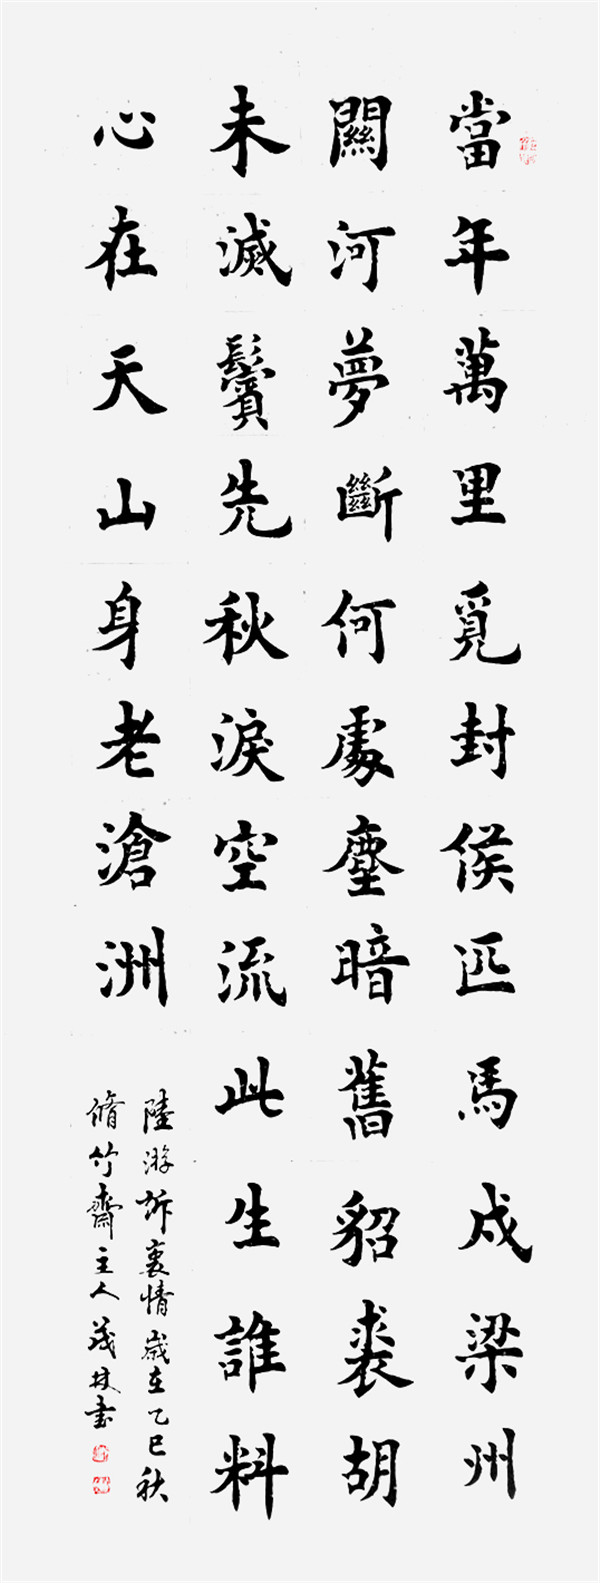 當年萬里覓封侯匹馬戍梁州
關河夢斷何處塵暗舊貂裘胡
未滅鬢先秋淚空流此生誰料
心在天山身老滄洲
陸游訴衷情歲在乙巳秋
脩竹齋主人茂林書